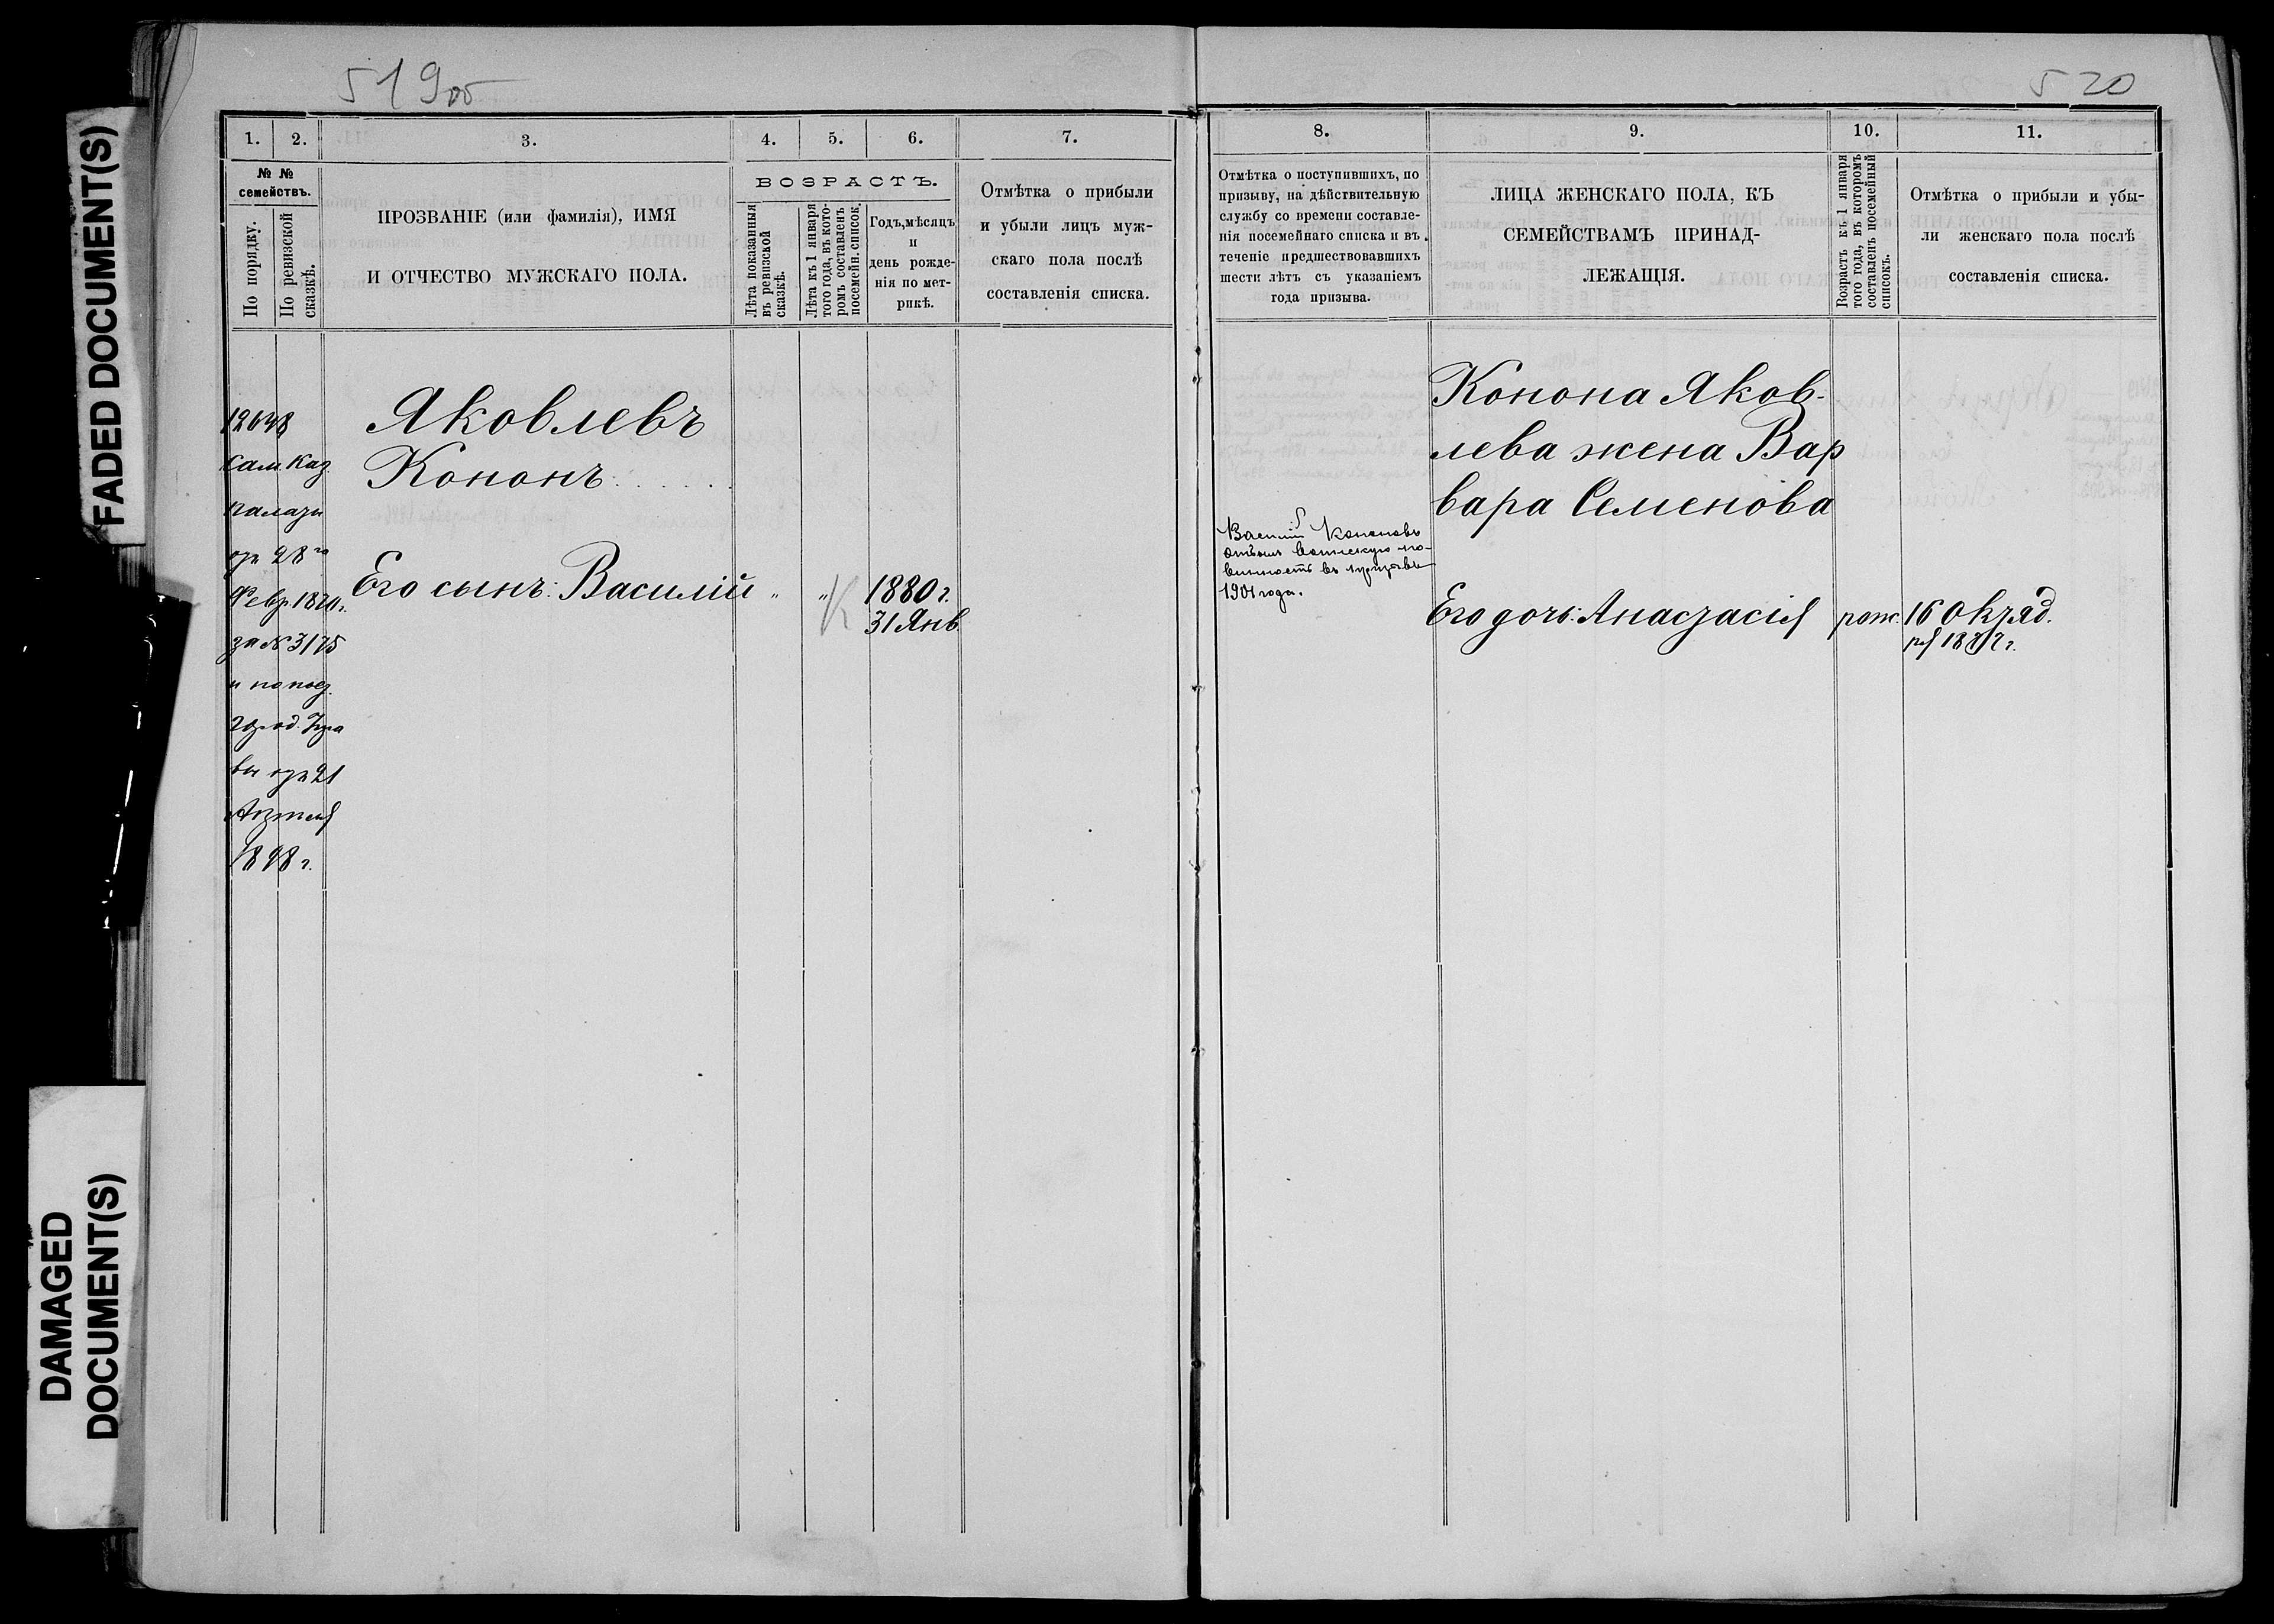 FADED DOCUMENT(S)
DAMAGED
DOCUMENT(S)
519об
1.
2.
3.
4.
5.
6.
7.
№ №
семействъ.
По порядку.
По ревизской
сказкѣ.
ПРОЗВАНІЕ (или фамилія), ИМЯ
И ОТЧЕСТВО МУЖСКАГО ПОЛА.
ВОЗРАСТЪ.
Лѣта показанныя
въ ревизской
сказкѣ.
Лѣта къ 1 января
того года, въ кото-
ромъ составленъ
посемейн. список.
Годъ, мѣсяцъ
и
день рожде-
нія по мет-
рикѣ.
Отмѣтка о прибыли
и убыли лицъ муж-
скаго пола послѣ
составленія списка.
12648
Сам. Каз.
палаты
отъ 28го
Февр. 1870 г.
за № 3175
и по пост.
город. Упра
вы отъ 21
Апреля
1898 г.
Яковлевъ
Кононъ
Его сынъ: Василій " "
К
1880 г.
31 Янв.
520
8.
9.
10.
11.
Отмѣтка о поступившихъ, по
призыву, на дѣйствительную
службу со времени составле-
нія посемейнаго списка и въ
теченіе предшествовавшихъ
шести лѣтъ съ указаніемъ
года призыва.
ЛИЦА ЖЕНСКАГО ПОЛА, КЪ
СЕМЕЙСТВАМЪ ПРИНАД-
ЛЕЖАЩІЯ.
Возрастъ къ 1 января
того года, въ которомъ
составленъ посемейный
списокъ.
Отмѣтка о прибыли и убы-
ли женскаго пола послѣ
составленія списка.
Василій Кононовъ
отбылъ воинскую по-
винность въ призывъ
1901 года.
Конона Яков-
лева жена Вар
вара Семенова
Его дочь: Анастасія рож. 16 Октяб.
ря 1877 г.